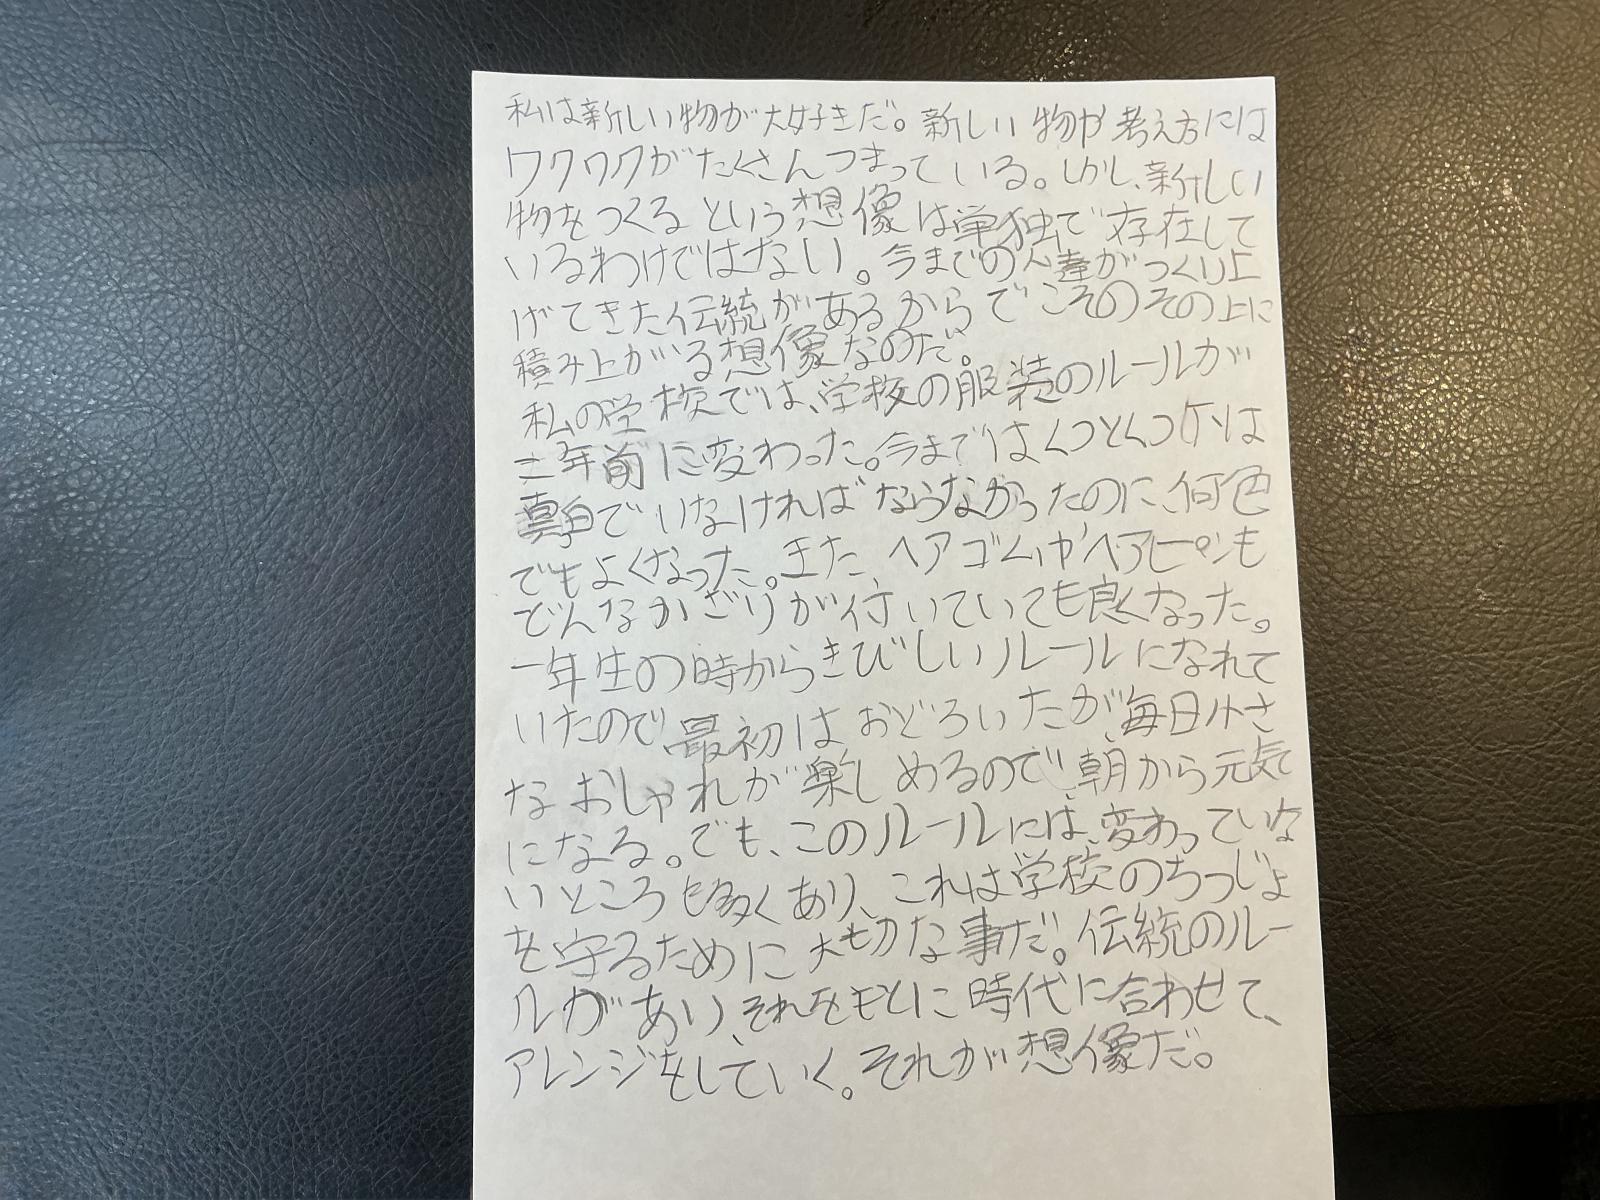 私は新しい物が大好きだ。新しい物や考え方には
ワクワクがたくさんつまっている。しかし、新しい
物をつくるという想像は単独で存在して
いるわけではない。今までの人達がつくり上
げてきた伝統があるからでこそのその上に
積み上がる想像なのだ。
私の学校では、学校の服装のルールが
二年前に変わった。今まではくつとくつ下は
真白でいなければならなかったのに、何色
でもよくなった。また、ヘアゴムやヘアピンも
どんなかざりが付いていても良くなった。
一年生の時からきびしいルールになれて
いたので、最初はおどろいたが、毎日小さ
なおしゃれが楽しめるので、朝から元気
になる。でも、このルールには、変わっていな
いところも多くあり、これは学校のちつじょ
を守るために大切な事だ。伝統のルー
ルがあり、それをもとに時代に合わせて、
アレンジをしていく。それが想像だ。